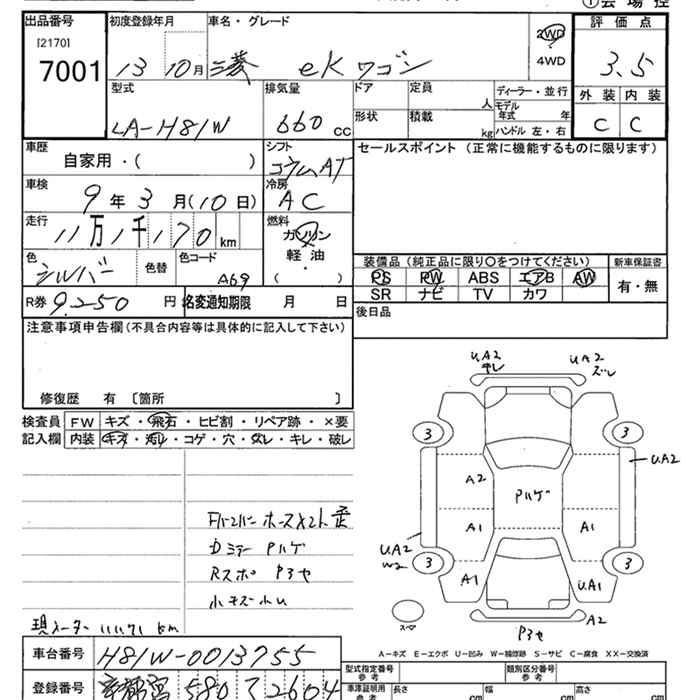 ①会場控
出品番号 初度登録年月 車名・グレード 2WD・4WD 評価点
[2170]
7001 13 10月 三菱 eKワゴン 3.5
型式 排気量 ドア 定員 ディーラー・並行 外装 内装
LA-H81W 660cc 形状 積載 人 kg モデル年式 年 ハンドル 左・右 C C
車歴 シフト セールスポイント(正常に機能するものに限ります)
自家用・( ) コラムAT
車検 冷房
9年3月(10日) AC
走行 燃料
11万1千170km ガソリン・軽油・( )
色 色替 色コード 装備品(純正品に限り○をつけてください) 新車保証書
シルバー A69 PS PW ABS エアB AW 有・無
SR ナビ TV カワ
R券 9.250円 名変通知期限 月 日 後日品
注意事項申告欄(不具合内容等は具体的に記入して下さい)
修復歴 有 〔箇所 〕
検査員 FW キズ・飛石・ヒビ割・リペア跡・×要
記入欄 内装 キズ・汚レ・コゲ・穴・スレ・キレ・破レ
U.A2 キレ
U.A2 ズレ
3 3
U.A2
A2
Pハゲ
A1 A1
U.A2
W2
3 3
A1 U.A1
A2
P3セ
スペア
Fバンパー ホースメント歪
Dミラー Pハゲ
Rスポ P3セ
小キズ小U
現メーター 111,171 km
A-キズ E-エクボ U-凹み W-補修跡 S-サビ C-腐食 XX-交換済
車台番号 H81W-0013755
登録番号 宇都宮 580 て 2604
型式指定番号 参考 類別区分番号 参考
車庫証明用 参考 長さ cm 幅 cm 高さ cm